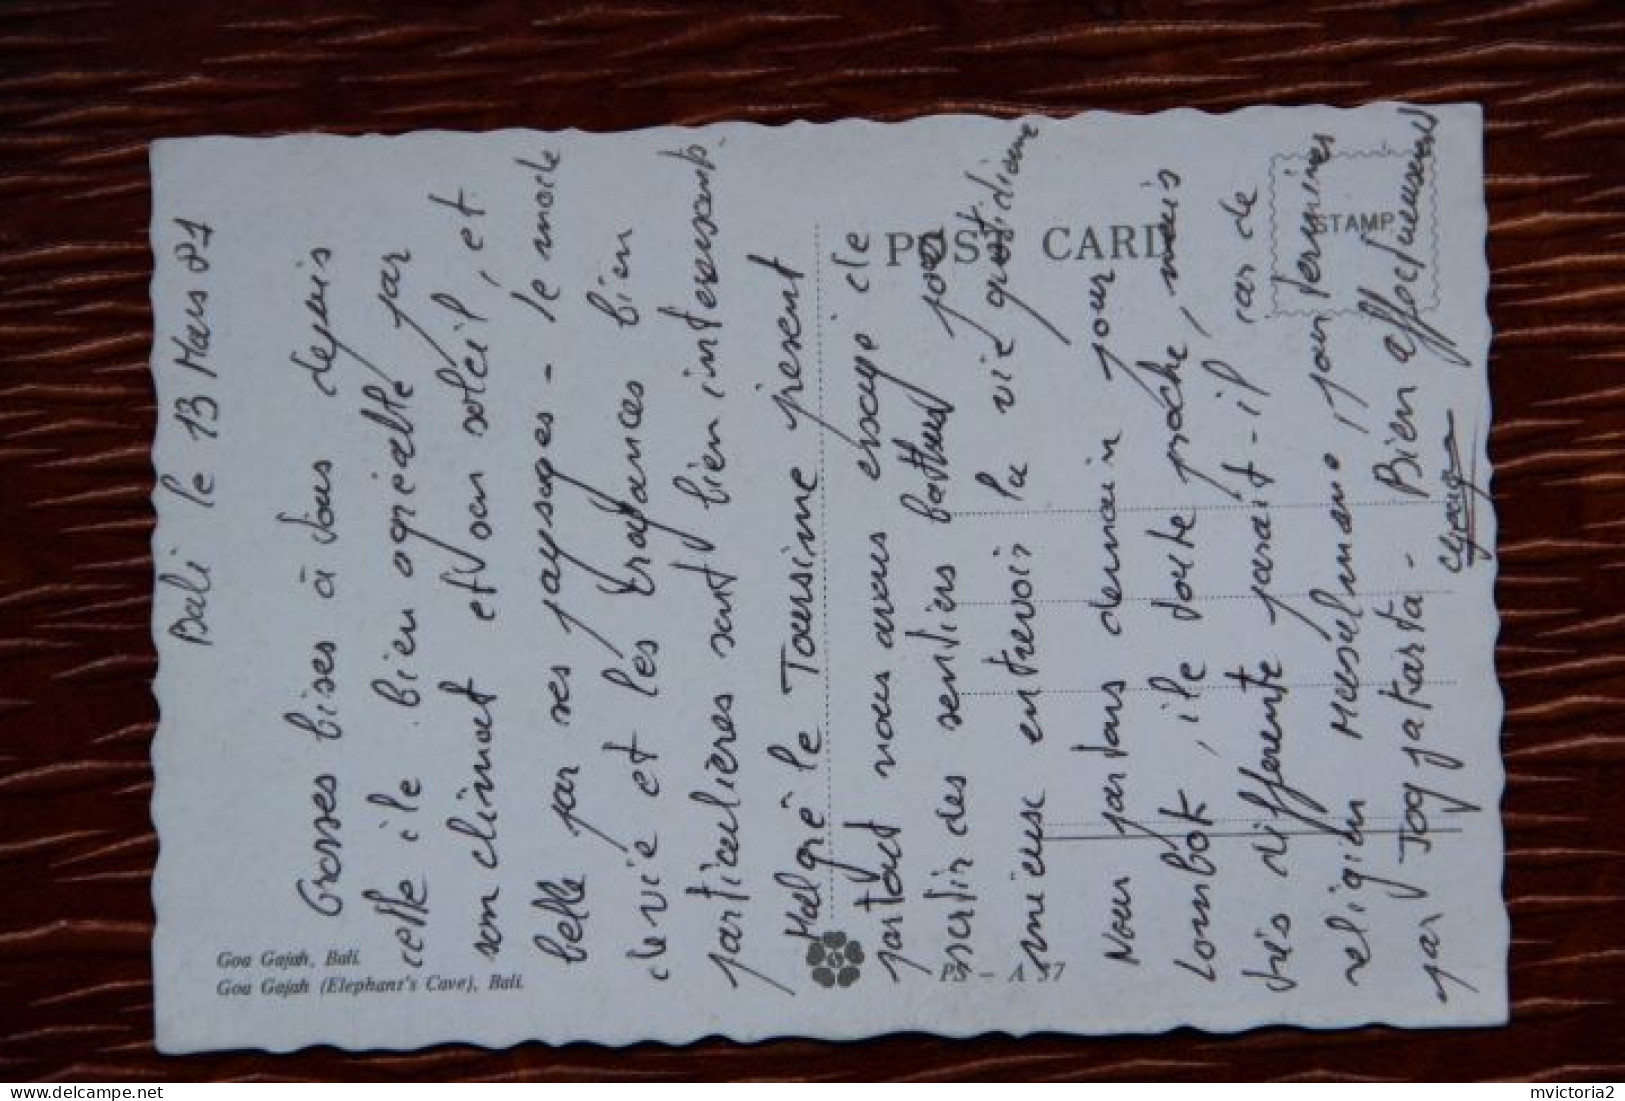 Bali le 13 Mars 81
Grosses bises à vous depuis
cette île bien agréable par
son climat et son soleil, et
belle par ses paysages - le mode
de vie et les croyances bien
particulieres sont bien interessants.
Malgré le Toursime present
partout nous avons essayé de
sortir des sentiers battus pour
mieux entrevoir la vie quotidienne
Nous partons demain pour
Lombok, île toute proche, mais
très differente parait-il car de
religion Musulmane, pour terminer
par Jogjakarta - Bien affectueusement
POST CARD
STAMP
Goa Gajah, Bali.
Goa Gajah (Elephant's Cave), Bali.
PS - A 37
delcampe.net
mvictoria2